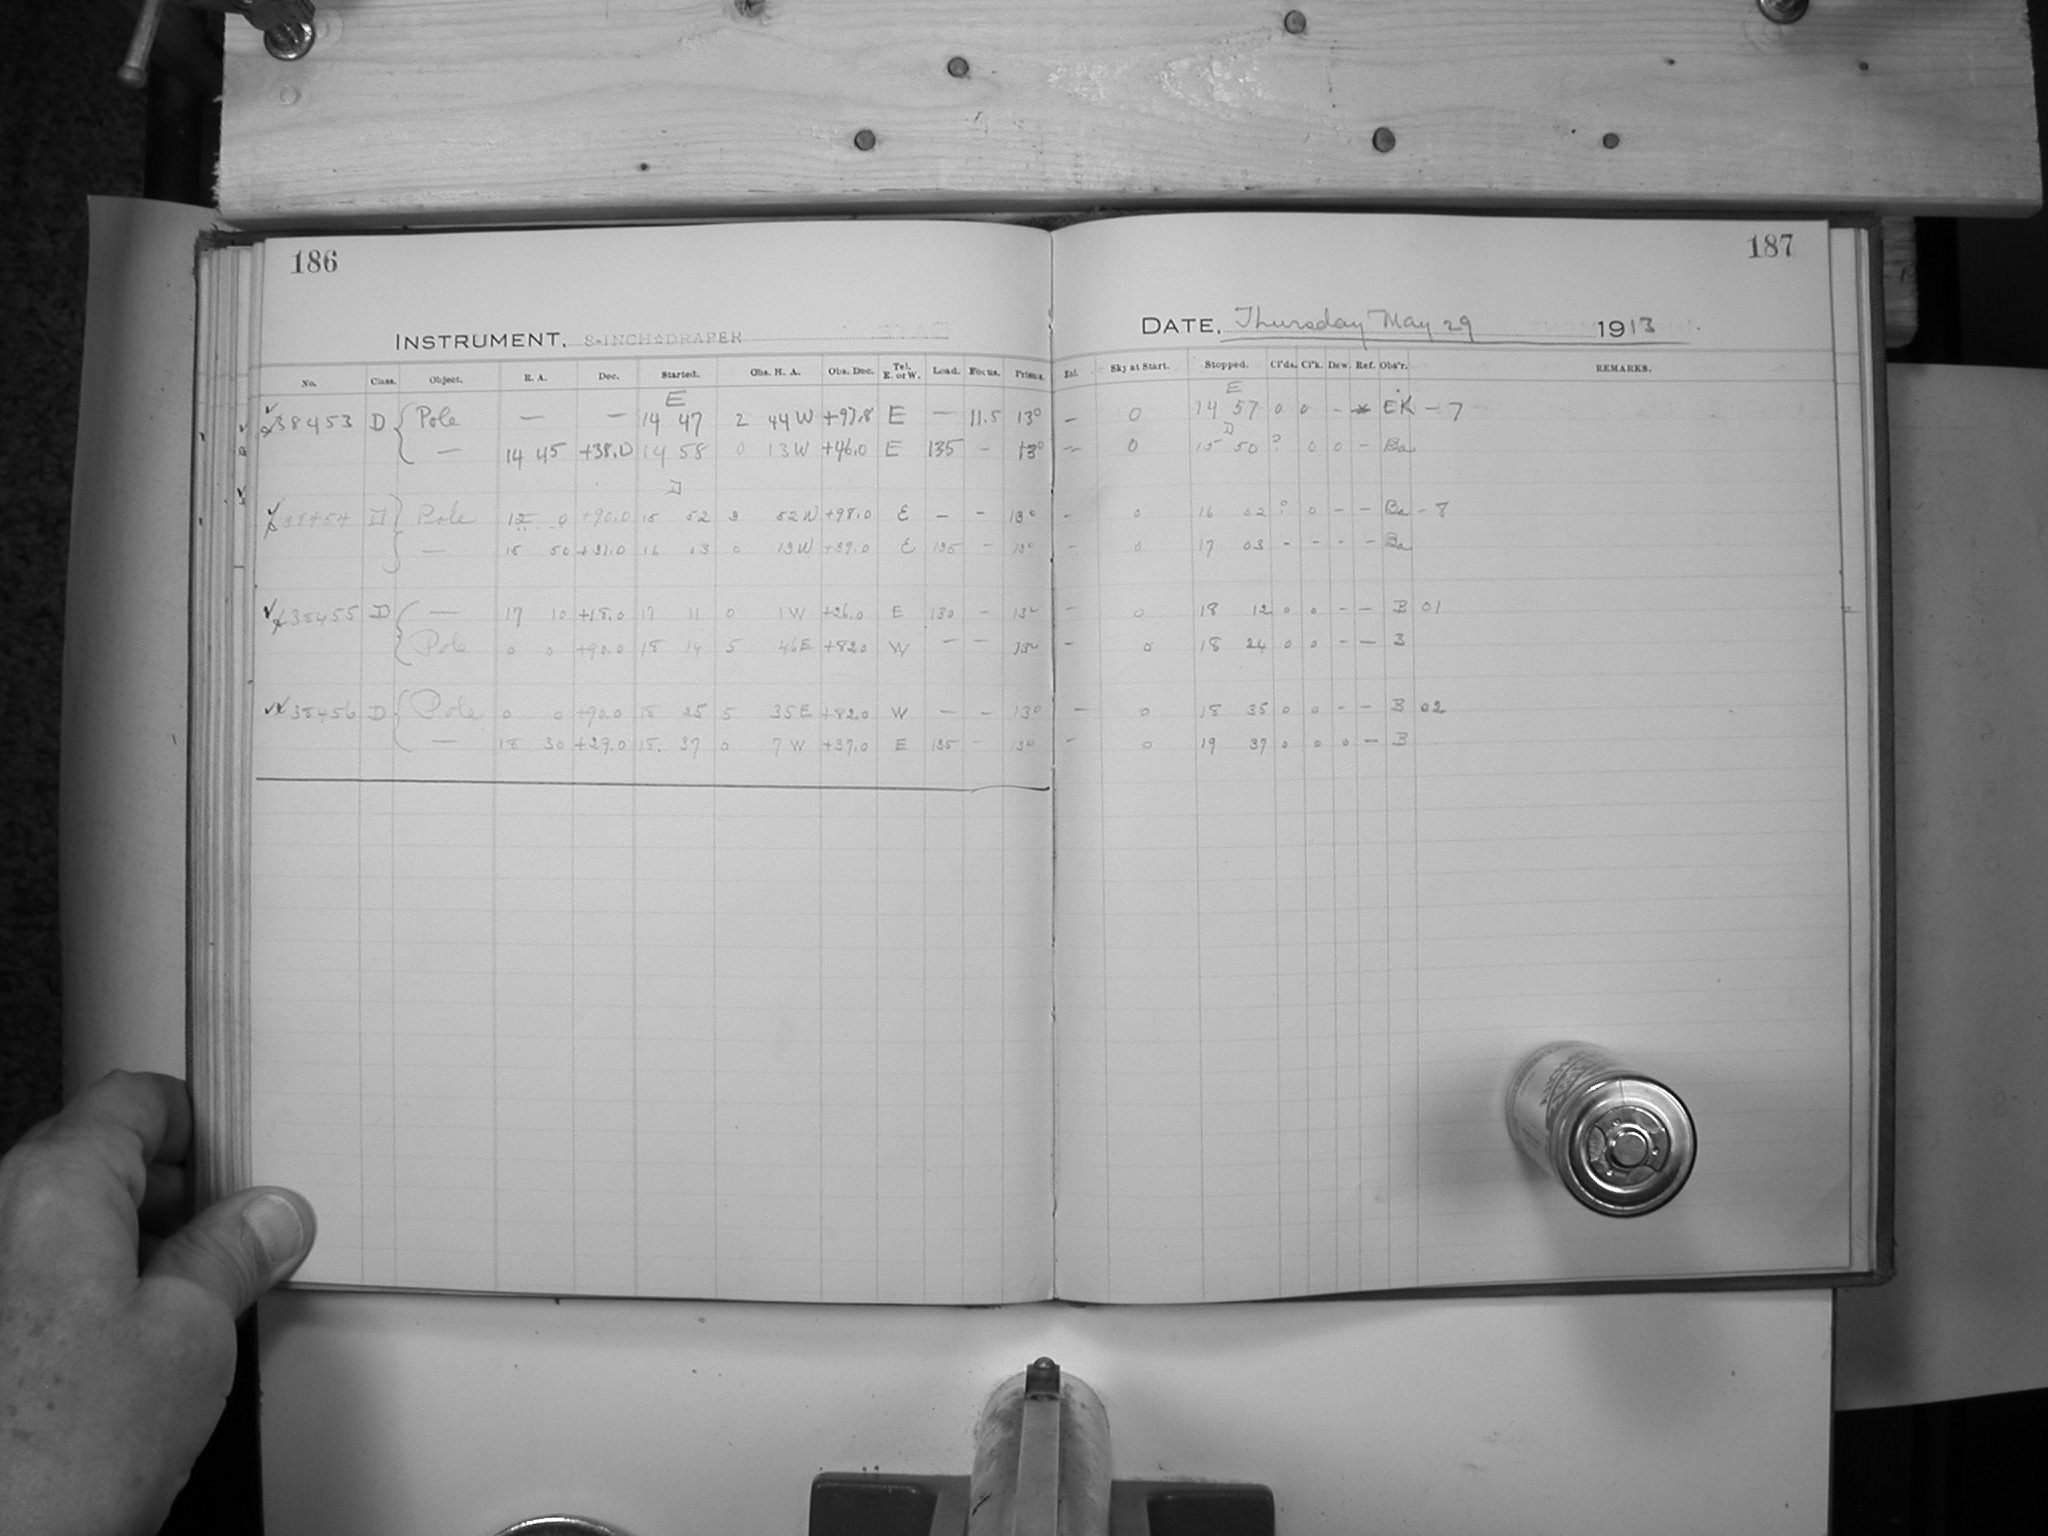 186
187
INSTRUMENT, 8-INCH DRAPER
DATE, Thursday May 29 1913
No. Class. Object. R. A. Dec. Started. Obs. H. A. Obs. Dec. Tel. E. or W. Load. Focus. Prisms. Sky at Start. Stopped. Cl'ds. Cl'k. Dew. Ref. Obs'r. REMARKS.
E E
38453 D Pole — — 14 47 2 44 W +97.8 E — 11.5 13° — 0 14 57 0 0 - EK - 7
D
— 14 45 +38.0 14 58 0 13 W +46.0 E 135 - 13° - 0 15 50 ? 0 0 - Ba
D
38454 D Pole 12 0 +90.0 15 52 3 52 W +98.0 E - - 13° - 0 16 02 ? 0 - - Ba - 8
— 15 50 +31.0 16 03 0 13 W +39.0 E 135 - 13° - 0 17 03 - - - - Ba
38455 D — 17 10 +18.0 17 11 0 1 W +26.0 E 130 - 13° - 0 18 12 0 0 - - B 01
Pole 0 0 +90.0 18 14 5 46 E +82.0 W - - 13° - 0 18 24 0 0 - - B
38456 D Pole 0 0 +90.0 18 25 5 35 E +82.0 W - - 13° - 0 18 35 0 0 - - B 02
— 18 30 +29.0 18. 37 0 7 W +37.0 E 135 - 13° - 0 19 37 0 0 0 - B